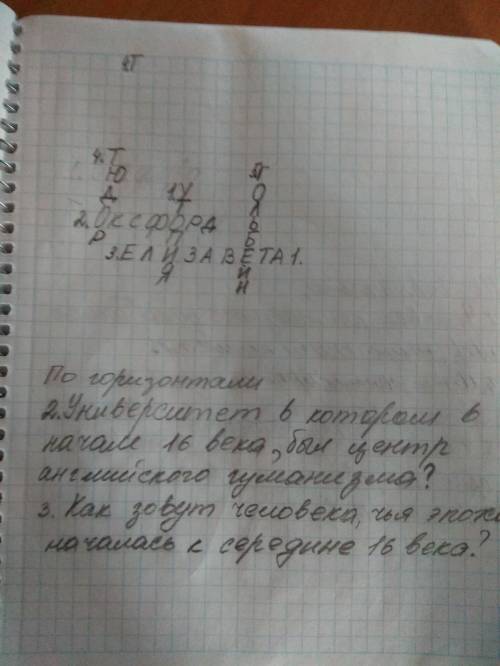 1Т
4.Т
Ю
Д
О
Р
5Г
О
Л
Ь
Б
Е
Й
Н
2.ОКСФОРД
3.ЕЛИЗАВЕТА1.
По горизонтали
2.Университет в котором в
начале 16 века, был центр
английского гуманизма?
3. Как зовут человека, чья эпоха
началась к середине 16 века?